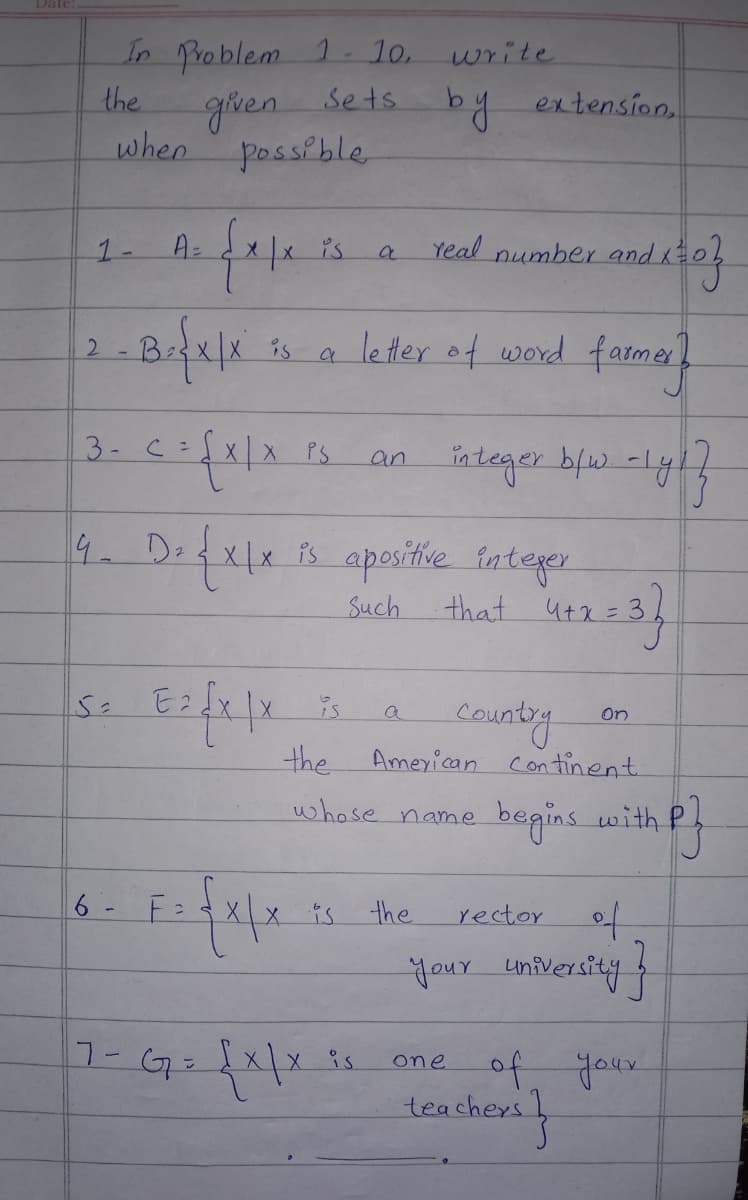 Date:
In Problem 1 - 10, write
the given sets by extension,
when possible
1- A= {x|x is a real number and x²=0}
2 - B={x|x is a letter of word farmer}
3- C = {x|x is an integer b/w -1 y 1}
4- D= {x|x is a positive integer
such that 4+x = 3}
5= E= {x|x is a country on
the American continent
whose name begins with P}
6 - F = {x|x is the rector of
your university}
7- G = {x|x is one of your
teachers}